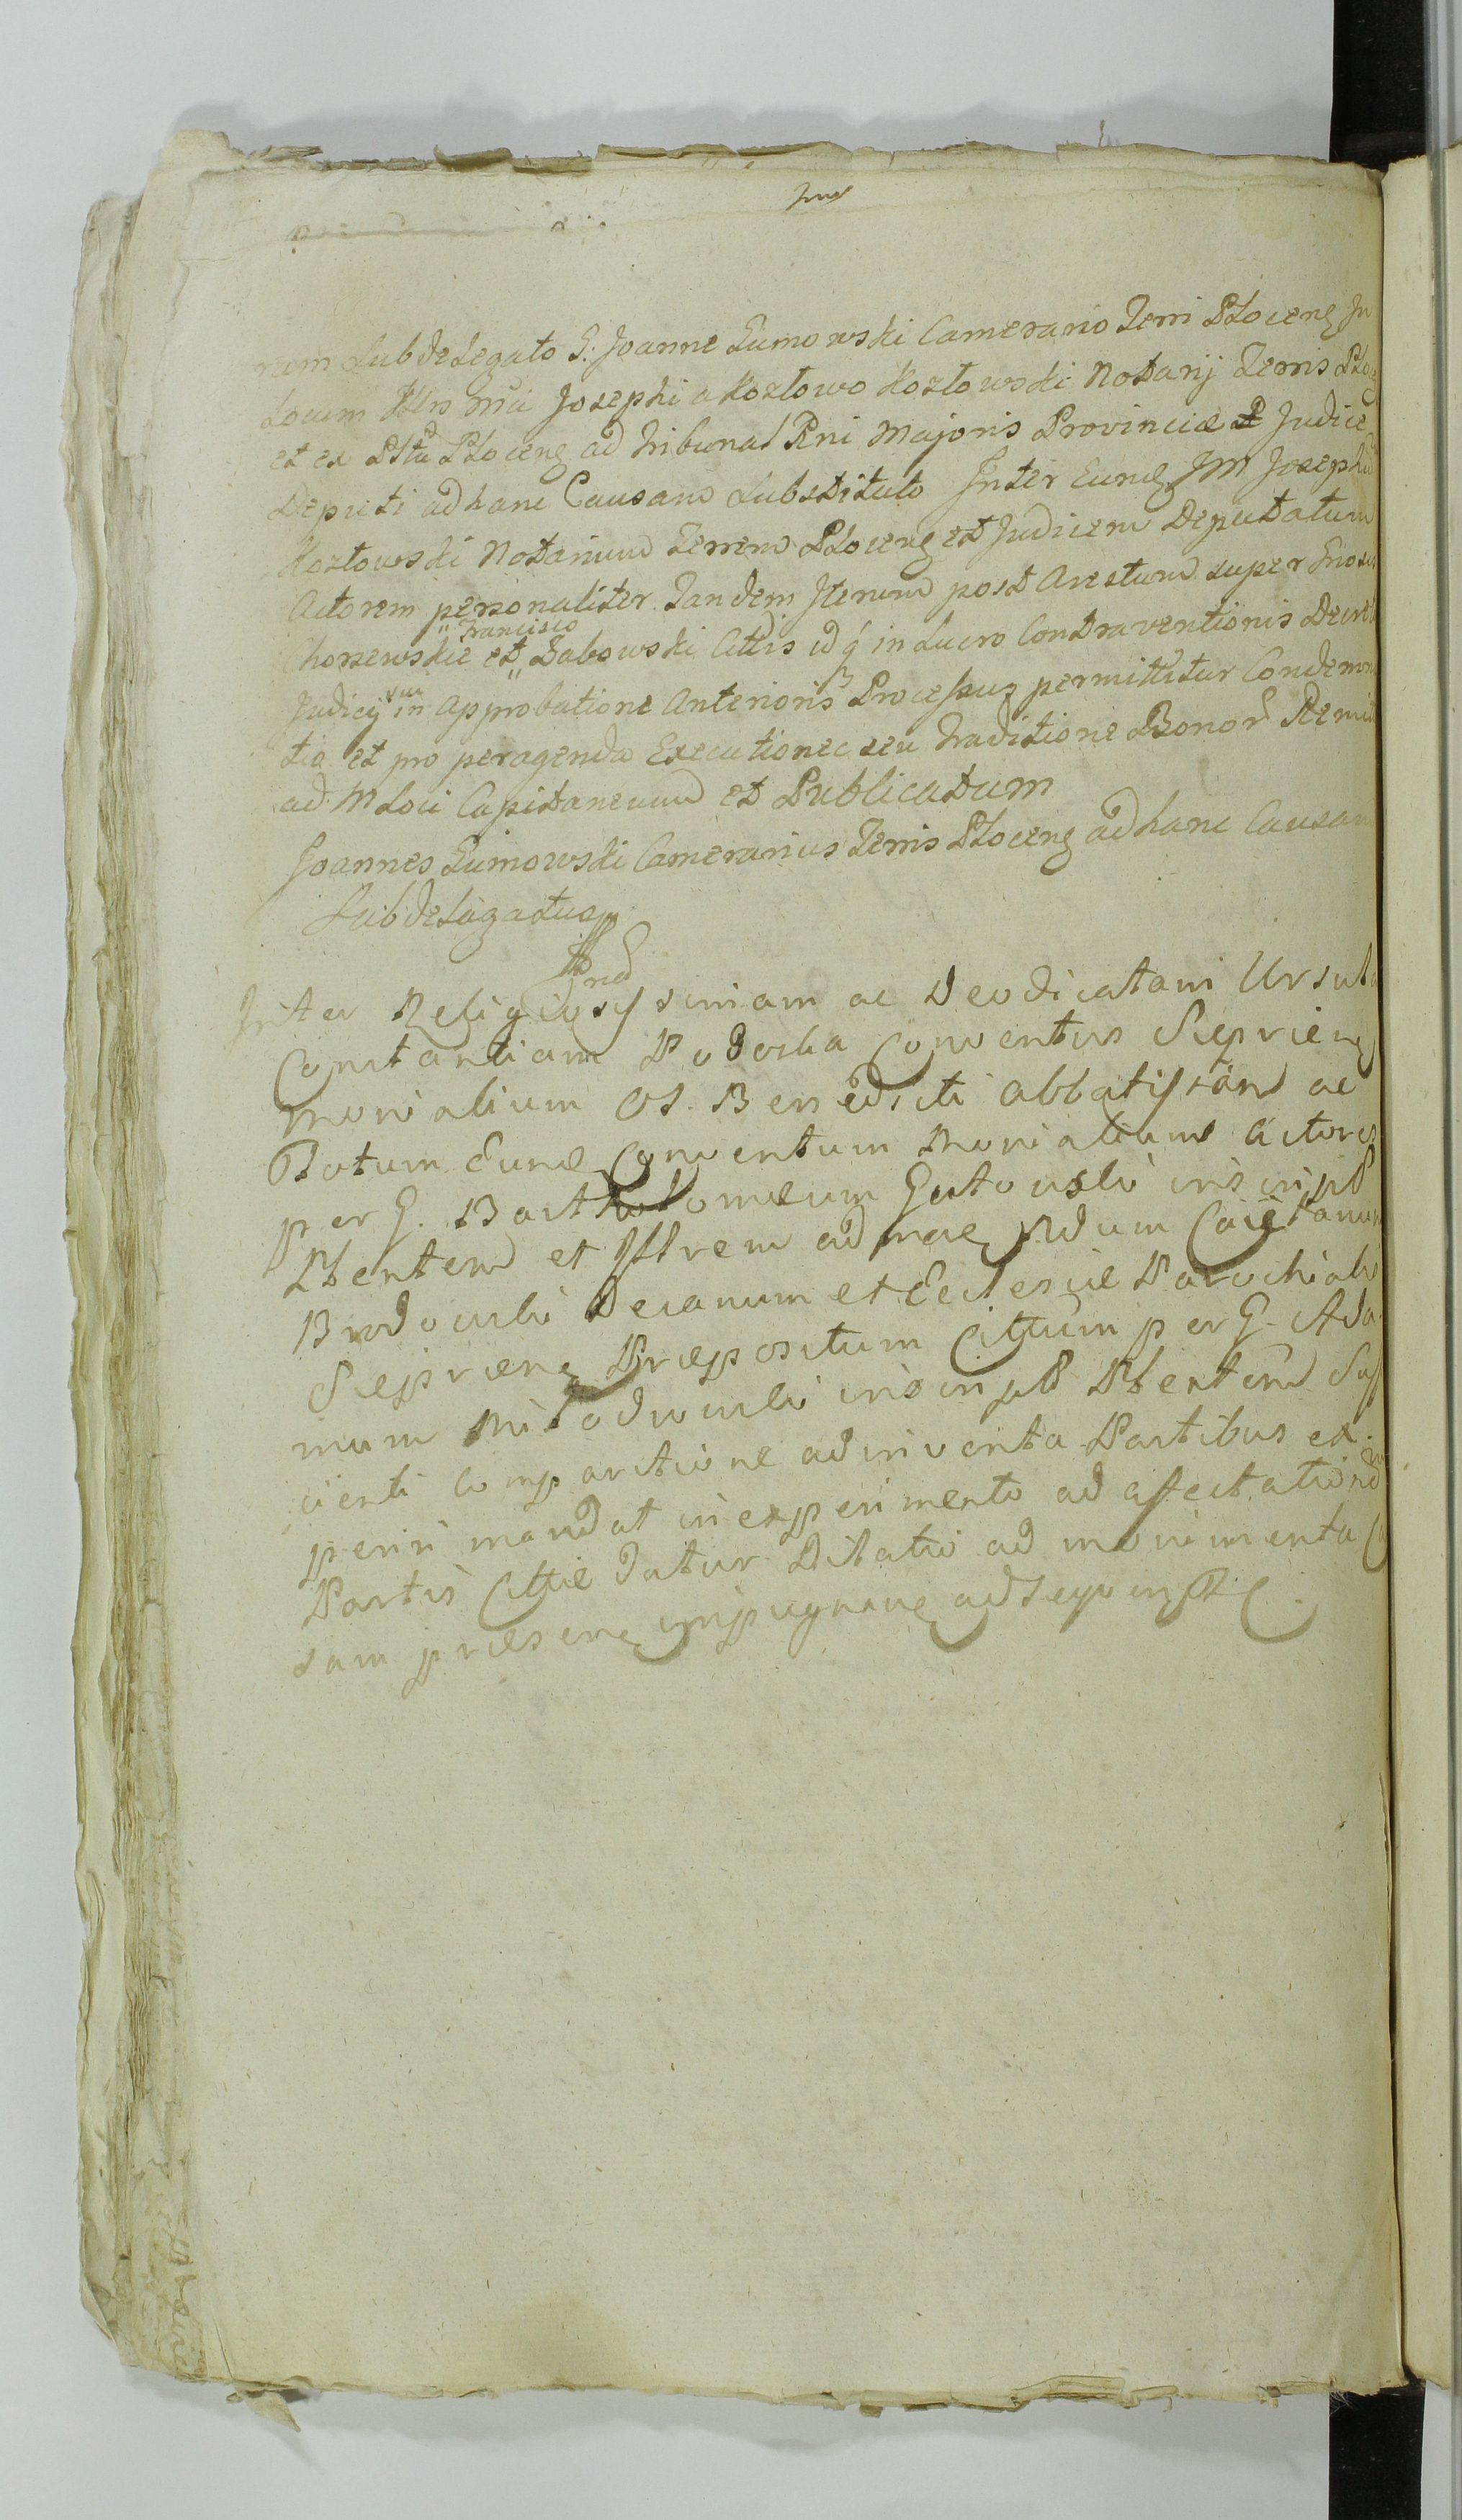 rum Subdelegato G. Joanne Łumowski Camerario Terri Plocens In
Locum Josephi a Kozłowo Kozłowski Notarij Terris Ploc
et ex Plocens ad Tribunal Rni Majoris Provinciæ Judice
Deputi ad hanc Causam Substituto Inter Eund JM Josephu
Kozłowski Notarium Terrem Plocens et Judicem Deputatum
Actorem personaliter. Tandem Iterum post Arestum super
Francisco
Chorzewskie et Babowski Cttis id q in Lucro Contraventionis Decreti
Judicij sui in Approbatione Anterioris Processus permittitur Condemna
tio et pro peragenda Executione seu Traditione Bonor Remit
ad M Loci Capitaneum et Publicatum
Joannes Łumowski Camerarius Terris Plocens ad hanc Causam
Subdelegatus
Inter Religiosissimam ac Deodicatam Ursula
Constantiam Podoska Conventus Sieprien
monialium OS. Benedicti Abbatissam ac
Totum Eund Conventum Monialium Actores
per G. Bartholomæum Gutowski
Pltentem et Illrem adm Rdum Caietanum
Brodowski Decanum et Ecclesiæ Parochialis
Sieprien Præpositum Cittum per G. Ada
mum Młodowski Pltentem Suf
ficienti Comparitione adinventa Partibus ex
periri mandat in experimento ad affectatione
Partis Cittæ datur Dilatio ad munimenta Ca
sam præsen impugnan